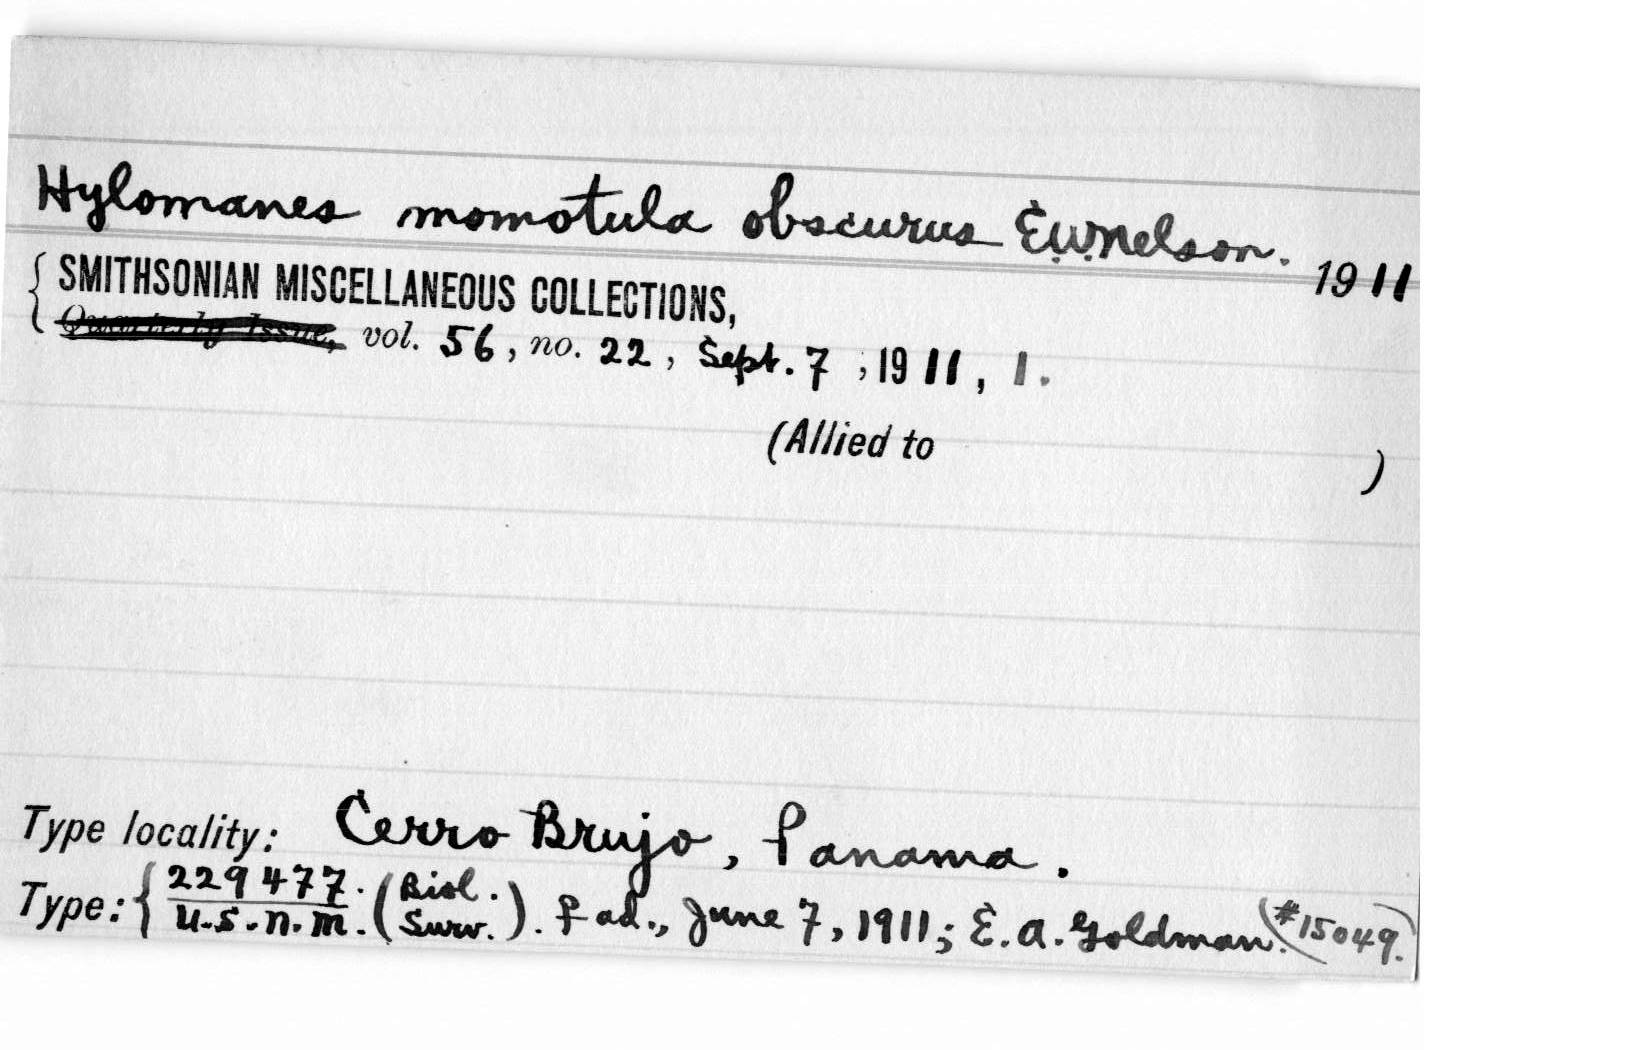 Hylomanes momotula obscurus E.W.Nelson. 1911
{ SMITHSONIAN MISCELLANEOUS COLLECTIONS,
Quarterly Issue, vol. 56, no. 22, Sept. 7, 1911, 1.
(Allied to )
Type locality: Cerro Brujo, Panama.
Type: { 229477. (Biol.
U.S.N.M. Surv.). ♀ ad., June 7, 1911; E. A. Goldman. (#15049.)